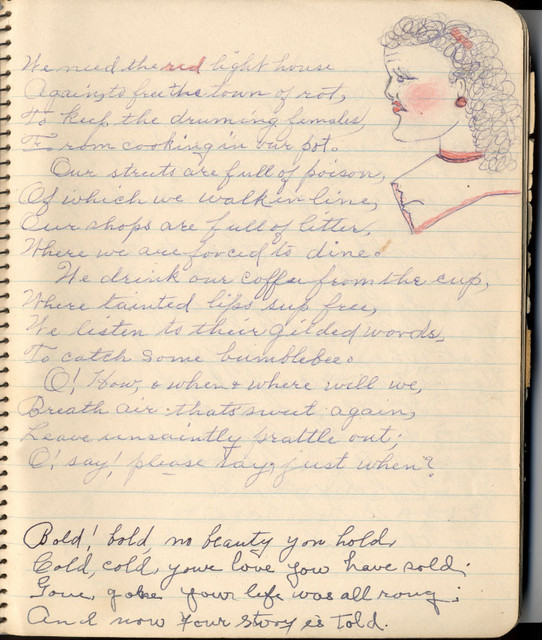 We need the red light house
Again, to free the town of rot,
To keep the druming females,
From cooking in our pot.
Our streets are full of poison,
Of which we walk in line,
Our shops are full of litter,
Where we are forced to dine.
We drink our coffee from the cup,
Where tainted lips sup free,
We listen to their gilded words,
To catch some bumblebee.
O! How, & when & where will we,
Breath air that's sweet again,
Leave unsaintly prattle out;
O! say! please say, just when?
Bold! bold, no beauty you hold,
Cold, cold, youre love you have sold;
Gone, gone your life was all rong;
And now your story is told.